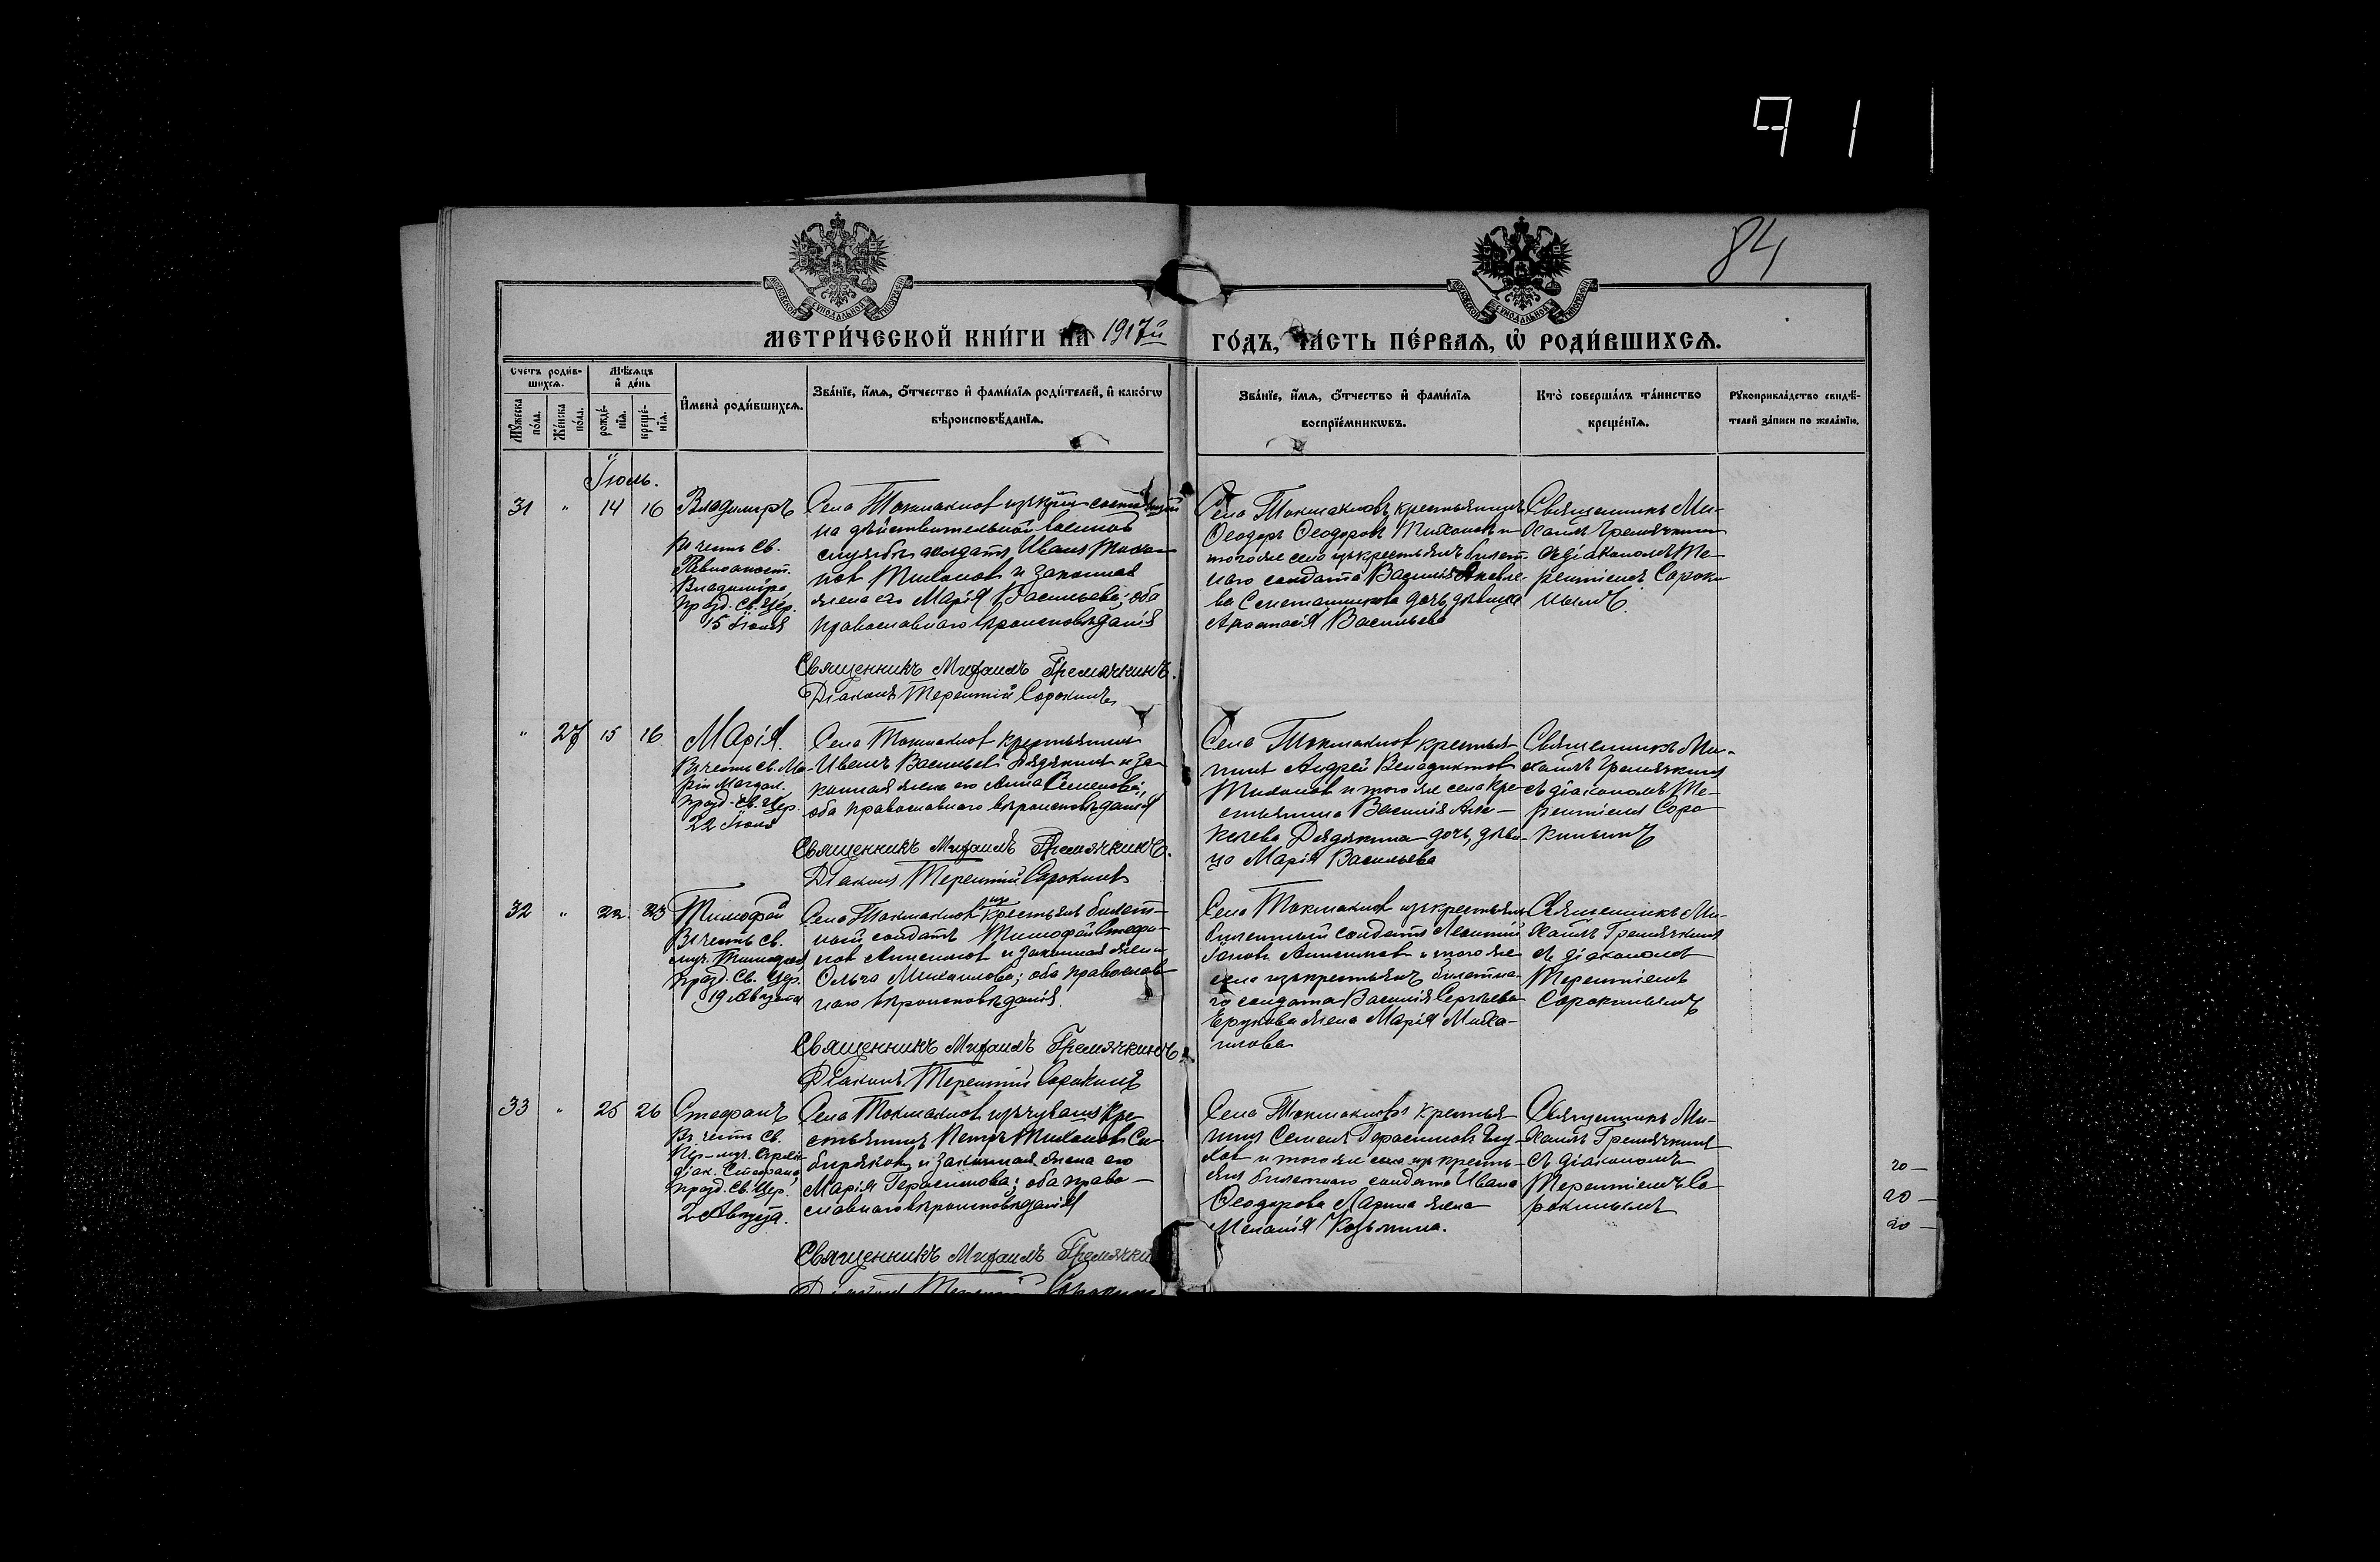 91
84
МЕТРИ́ЧЕСКОЙ КНИ́ГИ НА 1917й ГО́ДЪ, ЧА́СТЬ ПЕ́РВАѦ, Ѡ҆ РОДИ́ВШИХСѦ.
Счетъ роди́в-
шихсѧ.
Мѣ́сѧцъ
и҆ де́нь
Мꙋ́жеска
по́ла.
Же́нска
по́ла.
рожде́-
нїѧ.
креще́-
нїѧ.
И҆мена̀ роди́вшихсѧ.
Зва́нїе, и҆́мѧ, ѻ҆́тчество и҆ фами́лїѧ роди́телей, и҆ како́гѡ
вѣроисповѣ́данїѧ.
Зва́нїе, и҆́мѧ, ѻ҆́тчество и҆ фами́лїѧ
воспрїе́мникѡвъ.
Кто̀ соверша́лъ та́инство
креще́нїѧ.
Рꙋкоприкла́дство свидѣ́-
телей за́писи по жела́нїю.
Іюль.
31 " 14 16
Владиміръ
Въ честь св.
Равноапост.
Владиміра,
празд. св. Цер.
15 Іюля
Села Токмаклов изъ
на дѣйствительной военной
службѣ солдатъ Иванъ
нов Тихонов и законная
жена его Марія Васильева; оба
православнаго вѣроисповѣданія
Священникъ Михаилъ Гремячкинъ.
Діаконъ Терентій Сорокинъ
Села Токмакловъ крестьянинъ
Ѳеодоръ Ѳеодоровъ Тихонов и
того же села изъ крестьянъ билет-
наго солдата Василія Яковле-
ва дочь дѣвица
Анастасія Васильева
Священникъ Ми-
хаилъ Гремячкин
съ діакономъ Те-
рентіемъ Сороки
нымъ.
" 27 15 16
Марія.
Въ честь св. Ма-
ріи Магдал.
празд. св. Цер.
22 Іюля
Села Токмаклов крестьянин
Иванъ Васильев Дядякин и за-
конная жена его Анна Семенова;
оба православнаго вѣроисповѣданія
Священникъ Михаилъ Гремячкинъ.
Діаконъ Терентій Сорокинъ
Села Токмаклов крестья
нинъ Андрей Венедиктов
Тихонов и того же села кре-
стьянина Василія Але-
ксѣева Дядякина дочь, дѣви-
ца Марія Васильева
Священникъ Ми-
хаилъ Гремячкинъ
съ діакономъ Те-
рентіемъ Соро
кинымъ
32 " 22 23
Тимофей
Въ честь св.
муч. Тимофея
празд. св. Цер.
19 Августа
Села Токмаклов изъ крестьянъ билет-
ный солдатъ Тимофей Стефа-
нов Анисимов и законная жена
Ольга Михаилова; оба православ
наго вѣроисповѣданія.
Священникъ Михаилъ Гремячкинъ
Діаконъ Терентій Сорокинъ
Села Токмаклов изъ крестьянъ
билетный солдатъ Леонтій
Іаковъ Анисимов и того же
села изъ крестьянъ билетна-
го солдата Василія Сергѣева
жена Марія Миха-
илова
Священникъ Ми-
хаилъ Гремячкинъ
съ діакономъ
Терентіемъ
Сорокинымъ
33 " 25 26
Стефанъ
Въ честь св.
Пер-муч. Архид
діак. Стефана,
празд. св. Цер.
2 Августа.
Села Токмаклов изъ чувашъ кре
стьянинъ Петръ Тихонов Си
биряков и законная жена его
Марія Герасимова; оба право-
славнаго вѣроисповѣданія
Священникъ Михаилъ Гремячки
Діаконъ Терентій Сорокинъ
Села Токмакловъ крестья
нинъ Семенъ Герасимовъ Глу-
хов и того же села изъ кресть-
янъ билетнаго солдата Ивана
Ѳеодорова Ларина жена
Меланія Козьмина.
Священникъ Ми-
хаилъ Гремячкинъ
съ діакономъ
Терентіемъ Со
рокинымъ
20 —
20 —
20 —